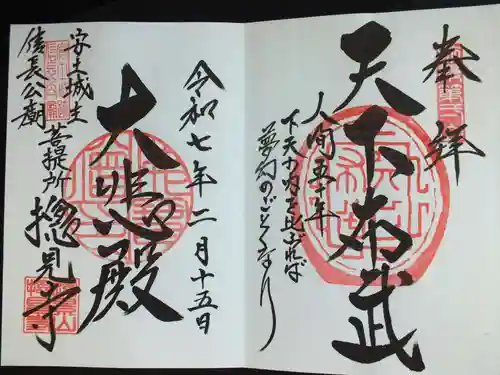 奉拝
天下布武
人間五十年
下天の内を比ぶれば
夢幻のごとくなり
令和七年二月十五日
大悲殿
安土城主
信長公廟
菩提所
摠見寺